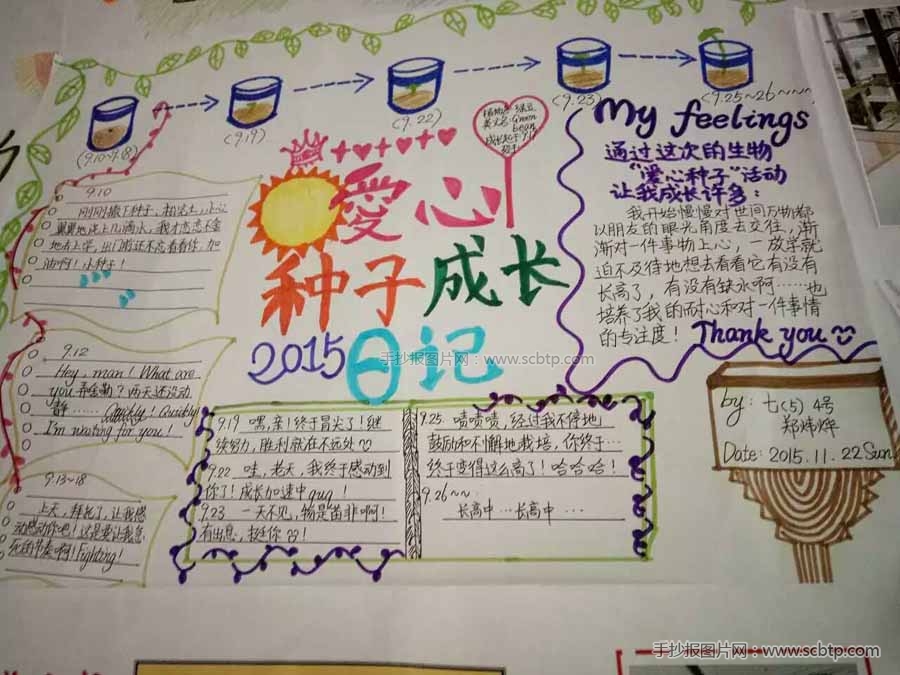 (9.10~9.18)
(9.19)
(9.22)
(9.23)
(9.25~26~~~)
植物名:绿豆
英文名:Green
bean
My feelings
通过这次的生物
“爱心种子”活动
让我成长许多:
我开始慢慢对世间万物都
以朋友的眼光角度去交往,渐
渐对一件事物上心,一放学就
迫不及待地想去看看它有没有
长高了,有没有缺水啊……也
培养了我的耐心和对一件事情
的专注度!
Thank you
爱心
种子成长
2015日记
手抄报图片网:www.scbtp.com
9.10
刚刚撒下种子,松完土,小心
翼翼地浇上几滴水,我才恋恋不舍
地去上学,出门前还不忘看看你,加
油啊!小种子!
9.12
Hey, man! What are
you弄啥勒?两天还没动
静…… Quickly! Quickly
I'm waiting for you!
9.13~18
上天,拜托了,让我感
动感动你吧!这是要让我急
死的节奏啊!Fighting!
9.19 嘿,亲!终于冒尖了!继
续努力,胜利就在不远处
9.22 哇,老天,我终于感动到
你了!成长加速中qwq!
9.23 一天不见,物是苗非啊!
有出息,挺你
9.25. 啧啧啧,经过我不停地
鼓励和不懈地栽培,你终于…
终于变得这么高了!哈哈哈!
9.26~~:
长高中…长高中…
by: 七(5) 4号
Date: 2015.11.22 Sun
手抄报图片网:www.scbtp.com